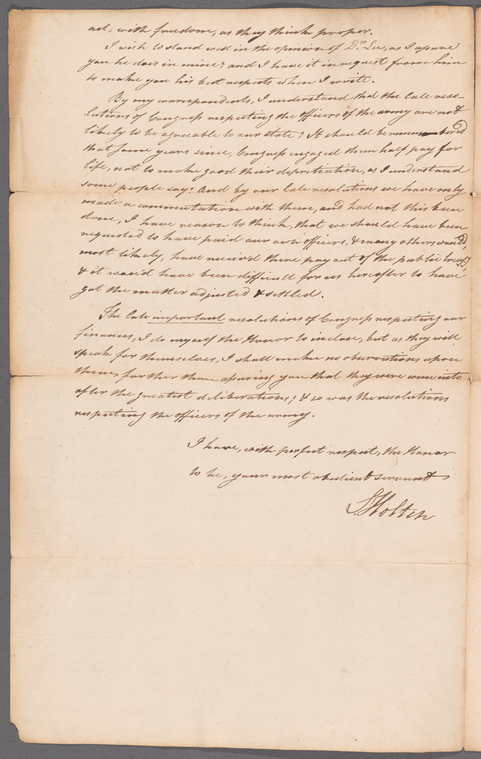 act, with freedom, as they think proper.
I wish to stand well in the opinion of Dr. Lee, as I assure
you he does in mine; and I have it in request from him
to make you his best respects when I write.
By my correspondents, I understand that the late reso-
lutions of Congress respecting the officers of the army are not
likely to be agreeable to our state; It should be remembered
that some years since, Congress engaged them half pay for
life, not to make good their depretiation, as I understand
some people say; And by our late resolutions we have only
made a commutation with them, and had not this been
done, I have reason to think, that we should have been
requested to have paid our own officers, & many others would
most likely, have received there pay out of the public treasy
& it wou'd have been difficult for us hereafter to have
got the matter adjusted & settled.
The late important resolutions of Congress respecting our
finances, I do myself the Honor to inclose, but as they will
speak for themselves, I shall make no observations upon
them, further than assuring you that they were come into
after the greatest deliberations; & so was the resolutions
respecting the officers of the army.
I have, with perfect respect, the Honor
to be, your most obedient servant
S. Holten